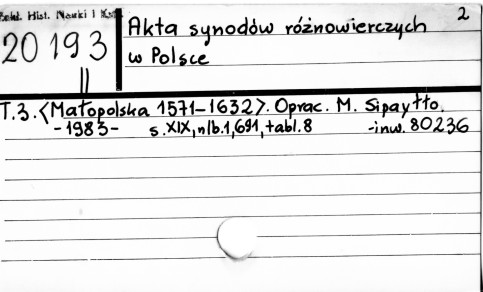 Zakł. Hist. Nauki i
2
20193
||
Akta synodów różnowierczych
w Polsce
T.3. <Małopolska 1571-1632>. Oprac. M. Sipayłło.
-1983- s.XIX, nlb.1, 691, tabl.8 -inw. 80236